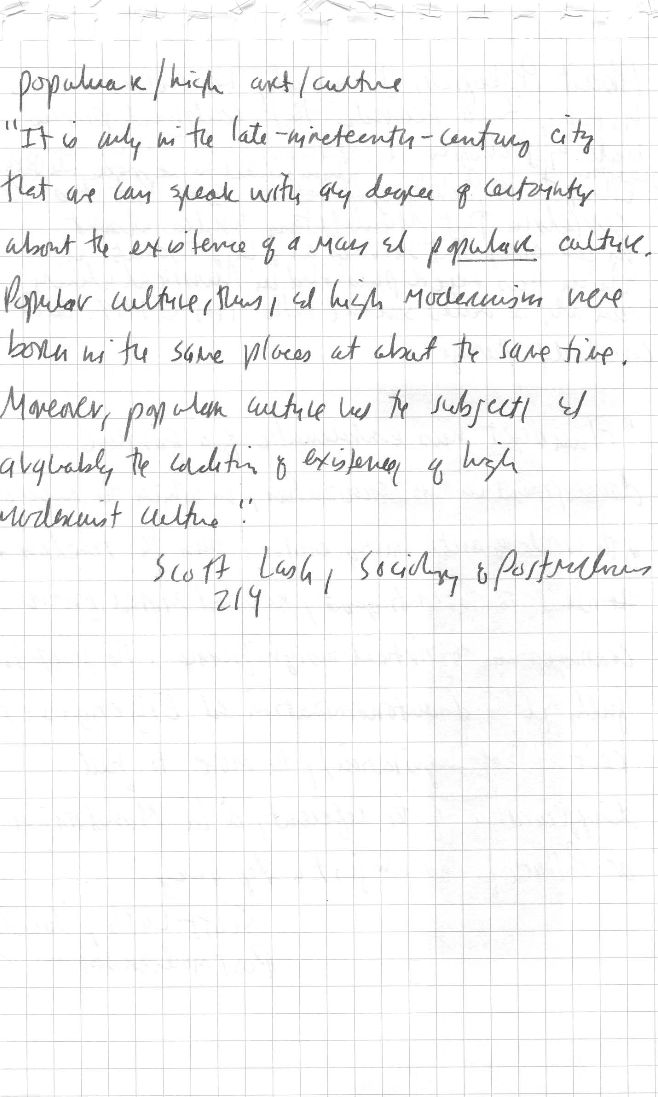 popular/high art/culture
"It is only in the late-nineteenth-century city
that we can speak with any degree of certainty
about the existence of a mass & popular culture.
Popular culture, thus, & high modernism were
born in the same places at about the same time.
Moreover, popular culture was the subject &
arguably the condition of existence of high
modernist culture".
Scott Lash, Sociology of Postmodernism
214